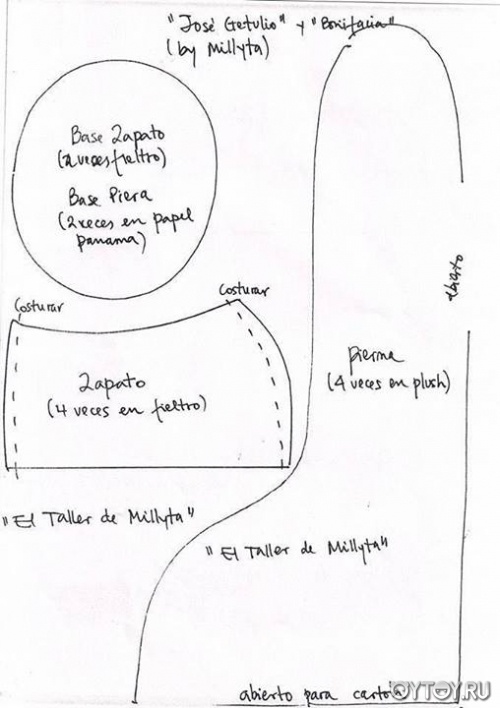 "José Getulio" y "Bonifacia"
(by Millyta)
Base Zapato
(2 veces fieltro)
Base Piera
(2 veces en papel
panama)
Costurar
Costurar
Zapato
(4 veces en fieltro)
abierto
pierna
(4 veces en plush)
"El Taller de Millyta"
"El Taller de Millyta"
abierto para carton
OYTOY.RU